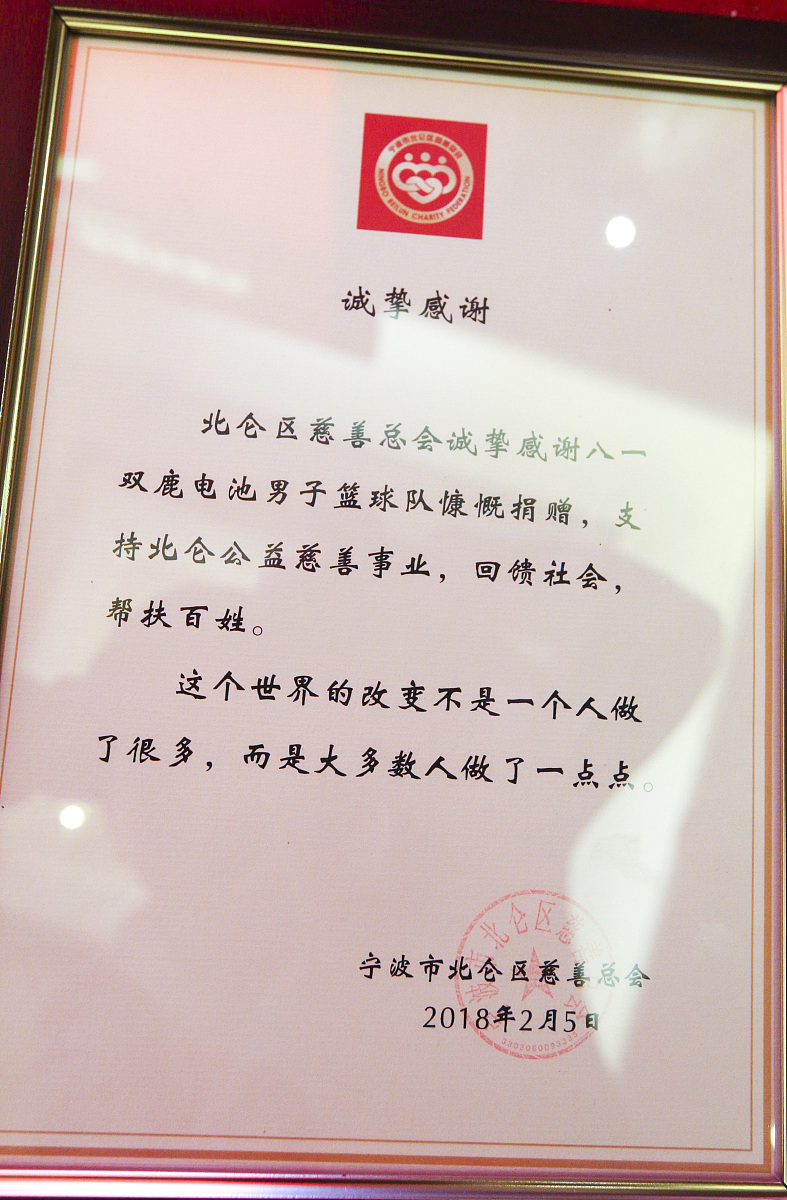 宁波市北仑区慈善总会
NINGBO BEILUN CHARITY FEDERATION
诚挚感谢
北仑区慈善总会诚挚感谢八一
双鹿电池男子篮球队慷慨捐赠，支
持北仑公益慈善事业，回馈社会，
帮扶百姓。
这个世界的改变不是一个人做
了很多，而是大多数人做了一点点。
宁波市北仑区慈善总会
2018年2月5日